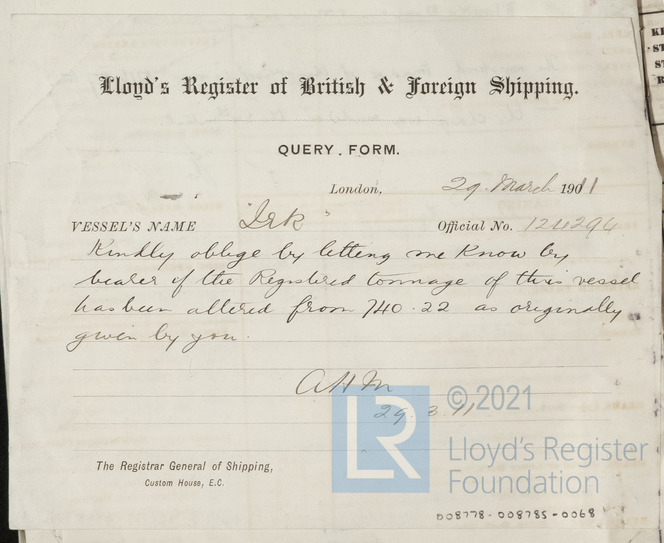 Lloyd's Register of British & Foreign Shipping.
QUERY. FORM.
London, 29. March 1911
VESSEL'S NAME "Irk" Official No. 124294
Kindly oblige by letting me know by
bearer if the Registered tonnage of this vessel
has been altered from 740.22 as originally
given by you.
AHM
29.3.11
LR
©2021
Lloyd's Register
Foundation
The Registrar General of Shipping,
Custom House, E.C.
008778-008785-0068